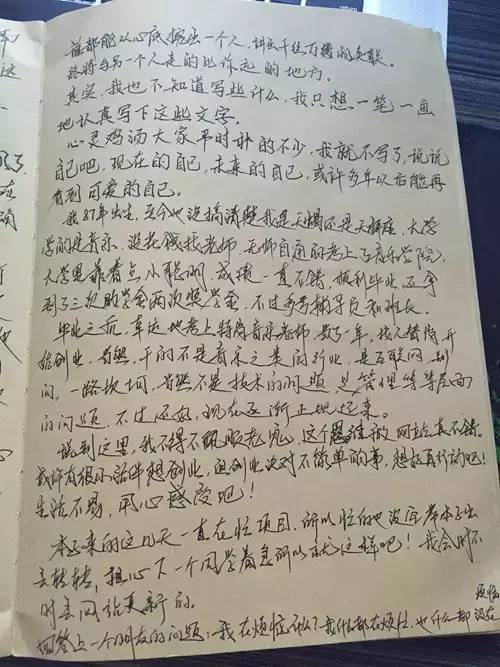 谁都能从心底掏出一个人，讲出千丝万缕的关联。
终将与另一个人走的比你远的地方。
其实，我也不知道写些什么，我只想一笔一画
地认真写下这些文字。
心灵鸡汤大家平时补的不少，我就不写了，说说
自己吧，现在的自己，未来的自己，或许多年以后能再
看到可爱的自己。
我87年出生，至今也没搞清楚我是天蝎还是天秤座，大学
学的是音乐，没花钱找老师，无师自通的考上了音乐学院，
大学里靠着点小聪明，成绩一直不错，顺利毕业，还拿
到了三次助学金两次奖学金，不过多亏辅导员和班长。
毕业之后，幸运地考上特岗音乐老师，教了一年，我又暂停开
始创业，当然，干的不是音乐之类的行业，是互联网，期
间，一路坎坷，当然不是技术的问题，是管理等等层面
的问题，不过还好，现在逐渐正规起来。
说到这里，我不得不佩服老宽，这个网站真不错。
或许有很多伙伴想创业，但创业决对不简单的事，想好再行动吧！
生活不易，用心感受吧！
本子来的这几天一直在忙项目，所以忙的也没宽带本子出
去转转，担心下一个同学着急所以就这样吧！我会时不
时去网站更新的。
回答上一个朋友的问题：我在烦恼什么？我什么都在烦恼，也什么都没在
烦恼